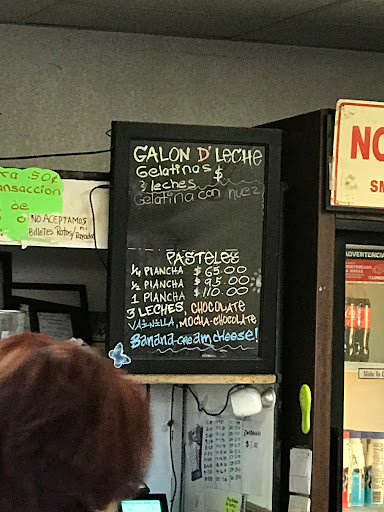 GALON D' LECHE
Gelatinas $
3 leches
Gelatina con nuez
PASTELES
1/4 PLANCHA $65.00
1/2 PLANCHA $95.00
1 PLANCHA $110.00
3 LECHES, CHOCOLATE
VAINILLA, MOCHA-CHOCOLATE
Banana-cream cheese!
.50¢
ansacción
de
NO ACEPTAMOS
Billetes Rotos
NO
SM
ADVERTENCIA